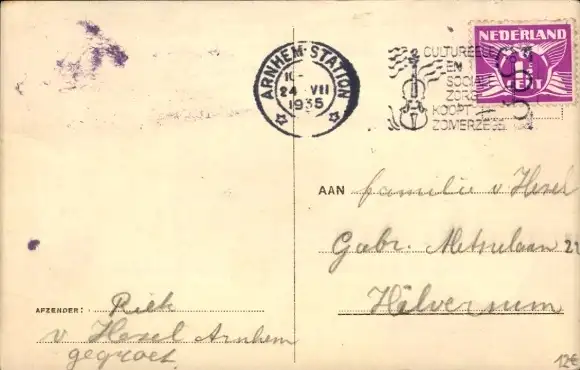 ARNHEM·STATION
10-
24 VII
1935
CULTUREELE
EN
SOCIALE
ZORG
KOOPT
ZOMERZEGELS
NEDERLAND
1
CENT
AAN familie v Hexel
Gabr. Metsulaan 21
Hilversum
AFZENDER: Riek
v Hexel Arnhem
gegroet
12€